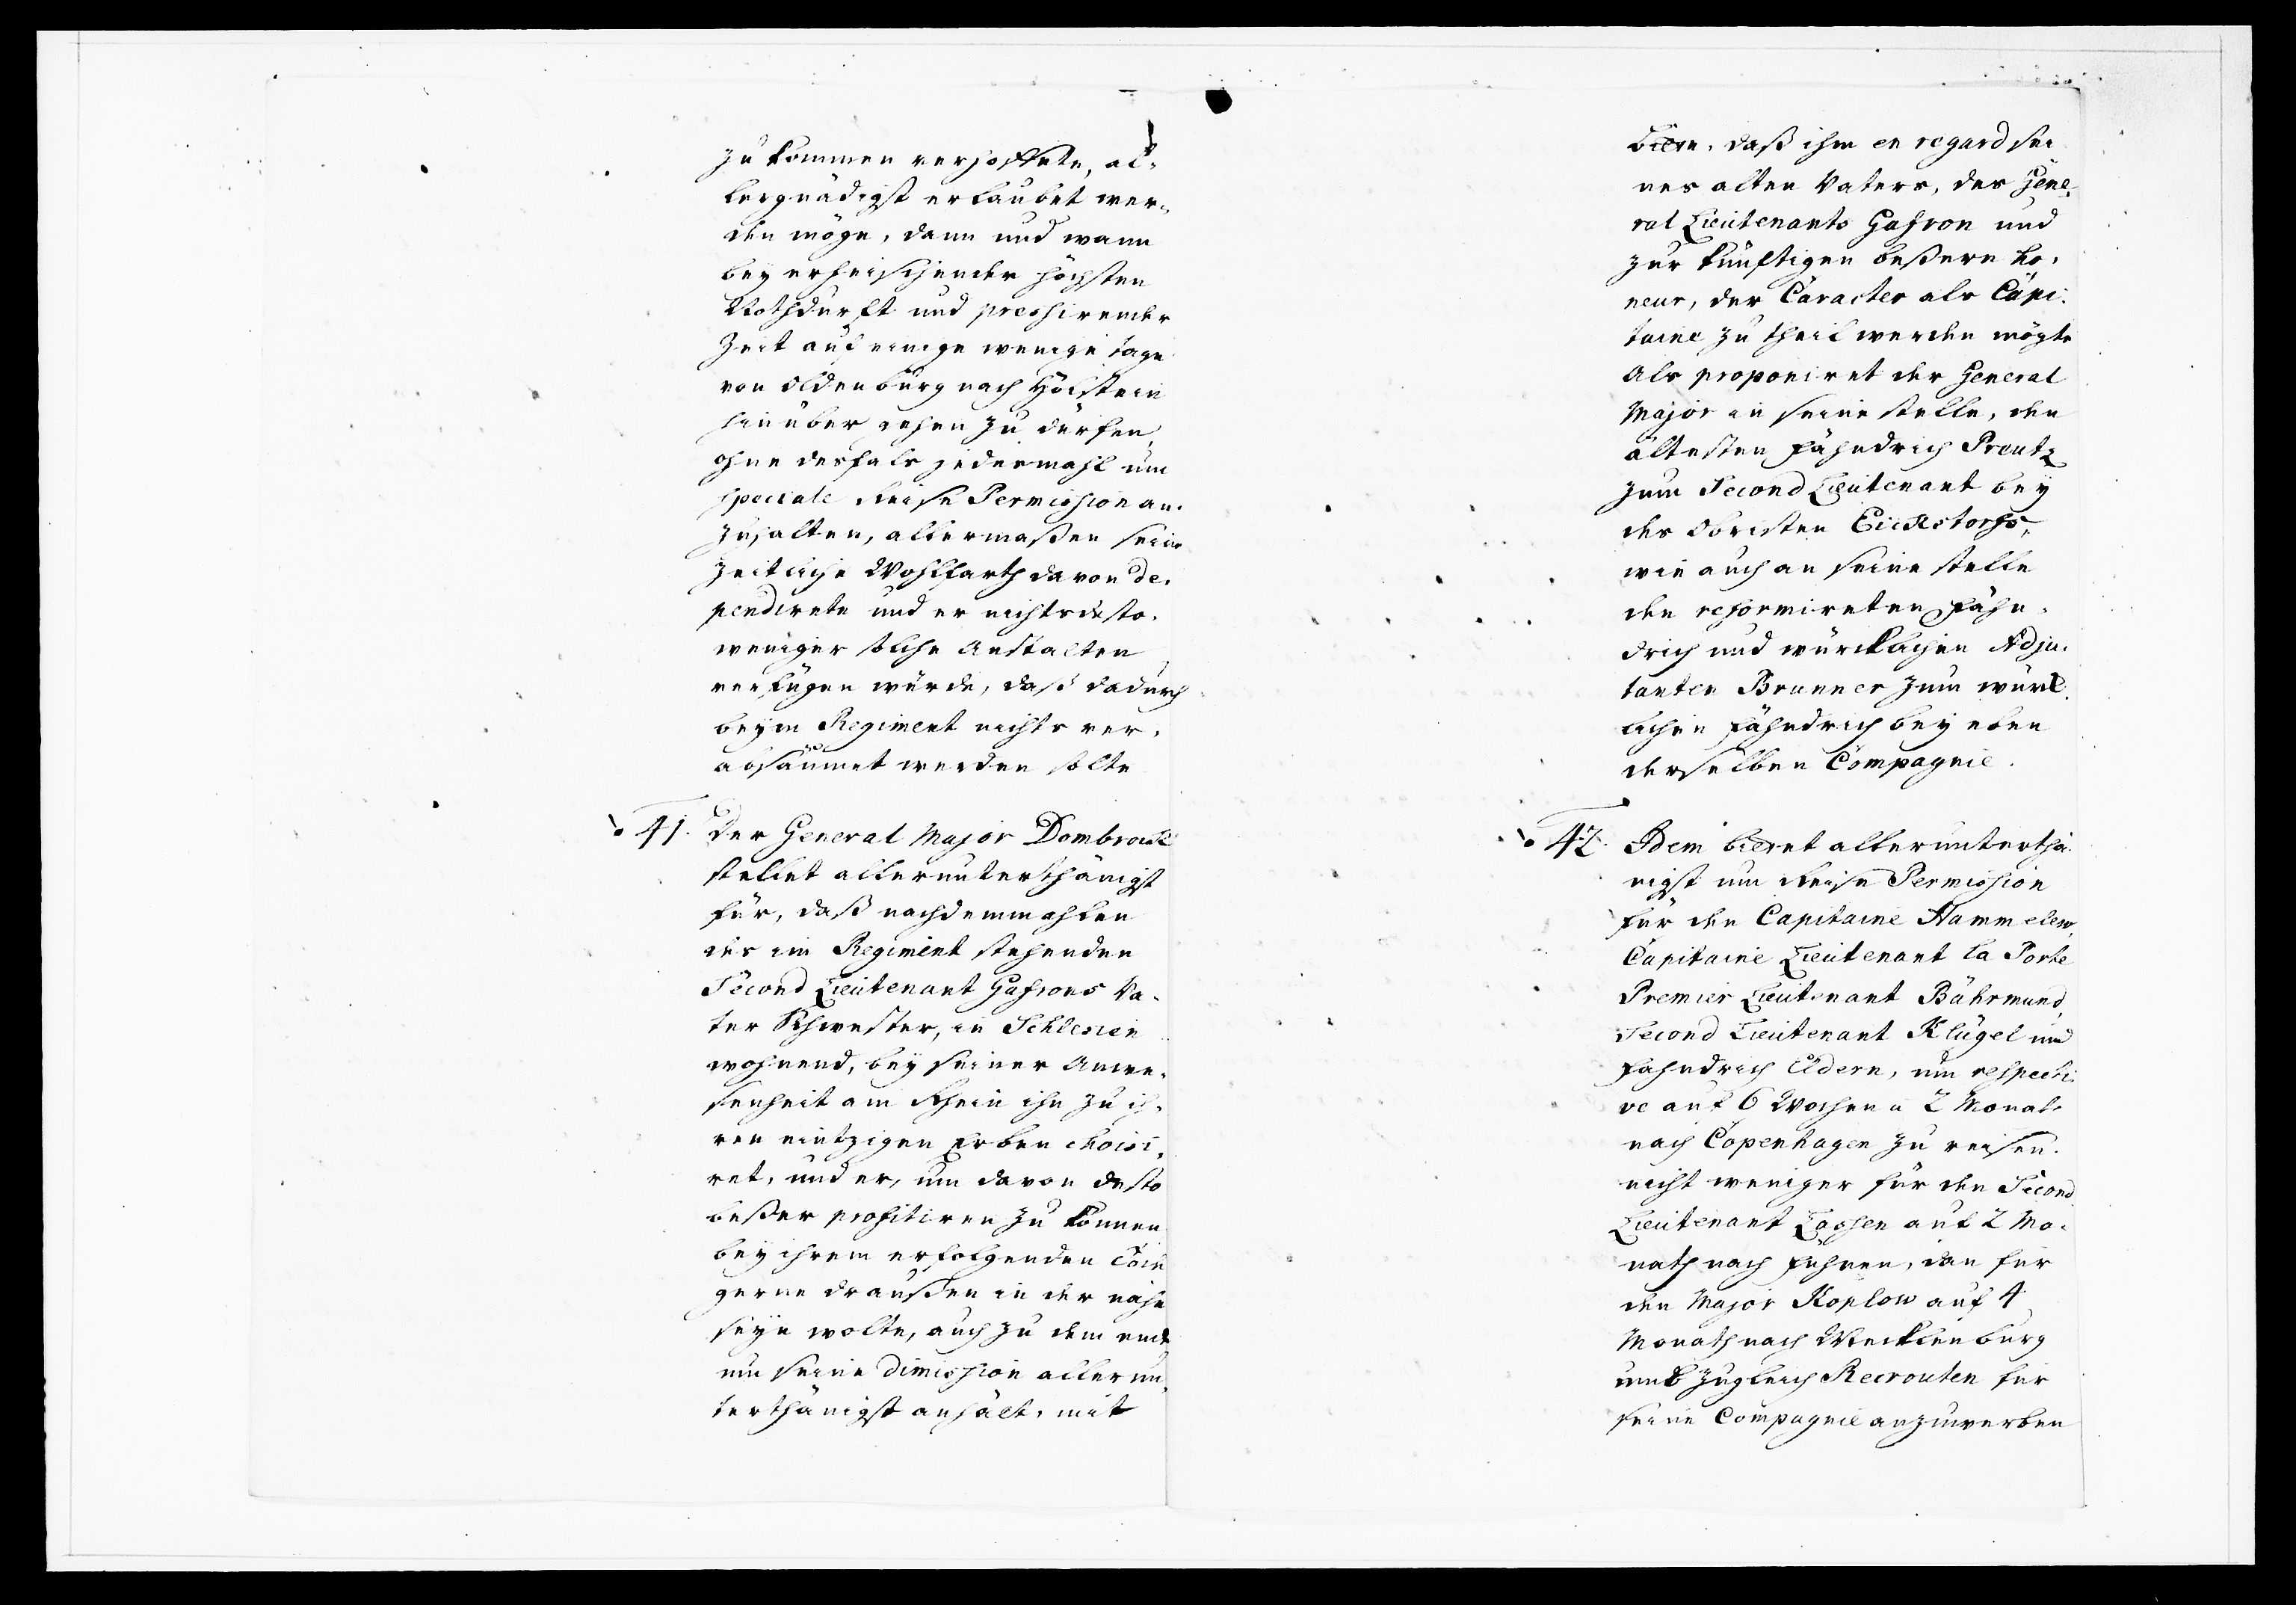 zu kommen verhoffete, al-
lergnädigst erlaubet wer-
den möge, dann und wann
bey erheischender höchsten
Nothdurft und pressirender
Zeit auf einige wenige tage
von Oldenburg nach Holstein
hinüber gehen zu dürfen,
ohne desfals jedesmahl um
speciale Reise Permission an-
zuhalten, allermaßen seine
zeitliche Wohlfarth davon de-
pendirete und er nichts desto-
weniger solche Anstalten
verfügen würde, daß dadurch
beym Regiment nichts ver-
absäumet werden solte
41. Der General Major Dombroick
stellet allerunterthänigst
für, daß nachdemmahlen
des im Regiment stehenden
Second Lieutenant Gafrons Va-
ter Schwester, in Schlesien
wohnend, bey seiner Anwe-
senheit am Rhein ihn zu ih-
ren eintzigen Erben choisi-
ret, und er, um davon desto
beßer profitiren zu können
bey ihrem erfolgenden Tode
gerne draußen in der nähe
seyn wolte, auch zu dem ende
um seine Dimission allerun-
terthänigst anhält, mit
Bitte, daß ihm en regard sei
nes alten Vaters, des Gene-
ral Lieutenants Gafron und
zur künftigen beßern ho-
neur, der Caracter als Capi-
taine zu theil werden mögte
Als proponiret der General
Major in seine stelle, den
ältesten Fähndrich Preutz
zum Second Lieutenant bey
des Obristen Eickstorfs,
wie auch an seine stelle
den reformireten Fähn-
drich und würcklichen Adju-
tanten Brunner zum würk-
lichen Fähndrich bey eben
derselben Compagnie.
42. Idem bittet allerunterthä-
nigst um Reise Permission
für den Capitaine Hammelew,
Capitaine Lieutenant la Porte
Premier Lieutenant Bährmund,
Second Lieutenant Klügel und
Fähndrich Eldern, um respecti-
ve auf 6 Wochen u 2 Monat
nach Copenhagen zu reisen.
nicht weniger für den Second
Lieutenant Lassen auf 2 Mo-
nath nach Fühnen, dan für
den Major Koplow auf 4
Monath nach Mecklenburg
umb zugleich Recrouten für
seine Compagnie anzuwerben